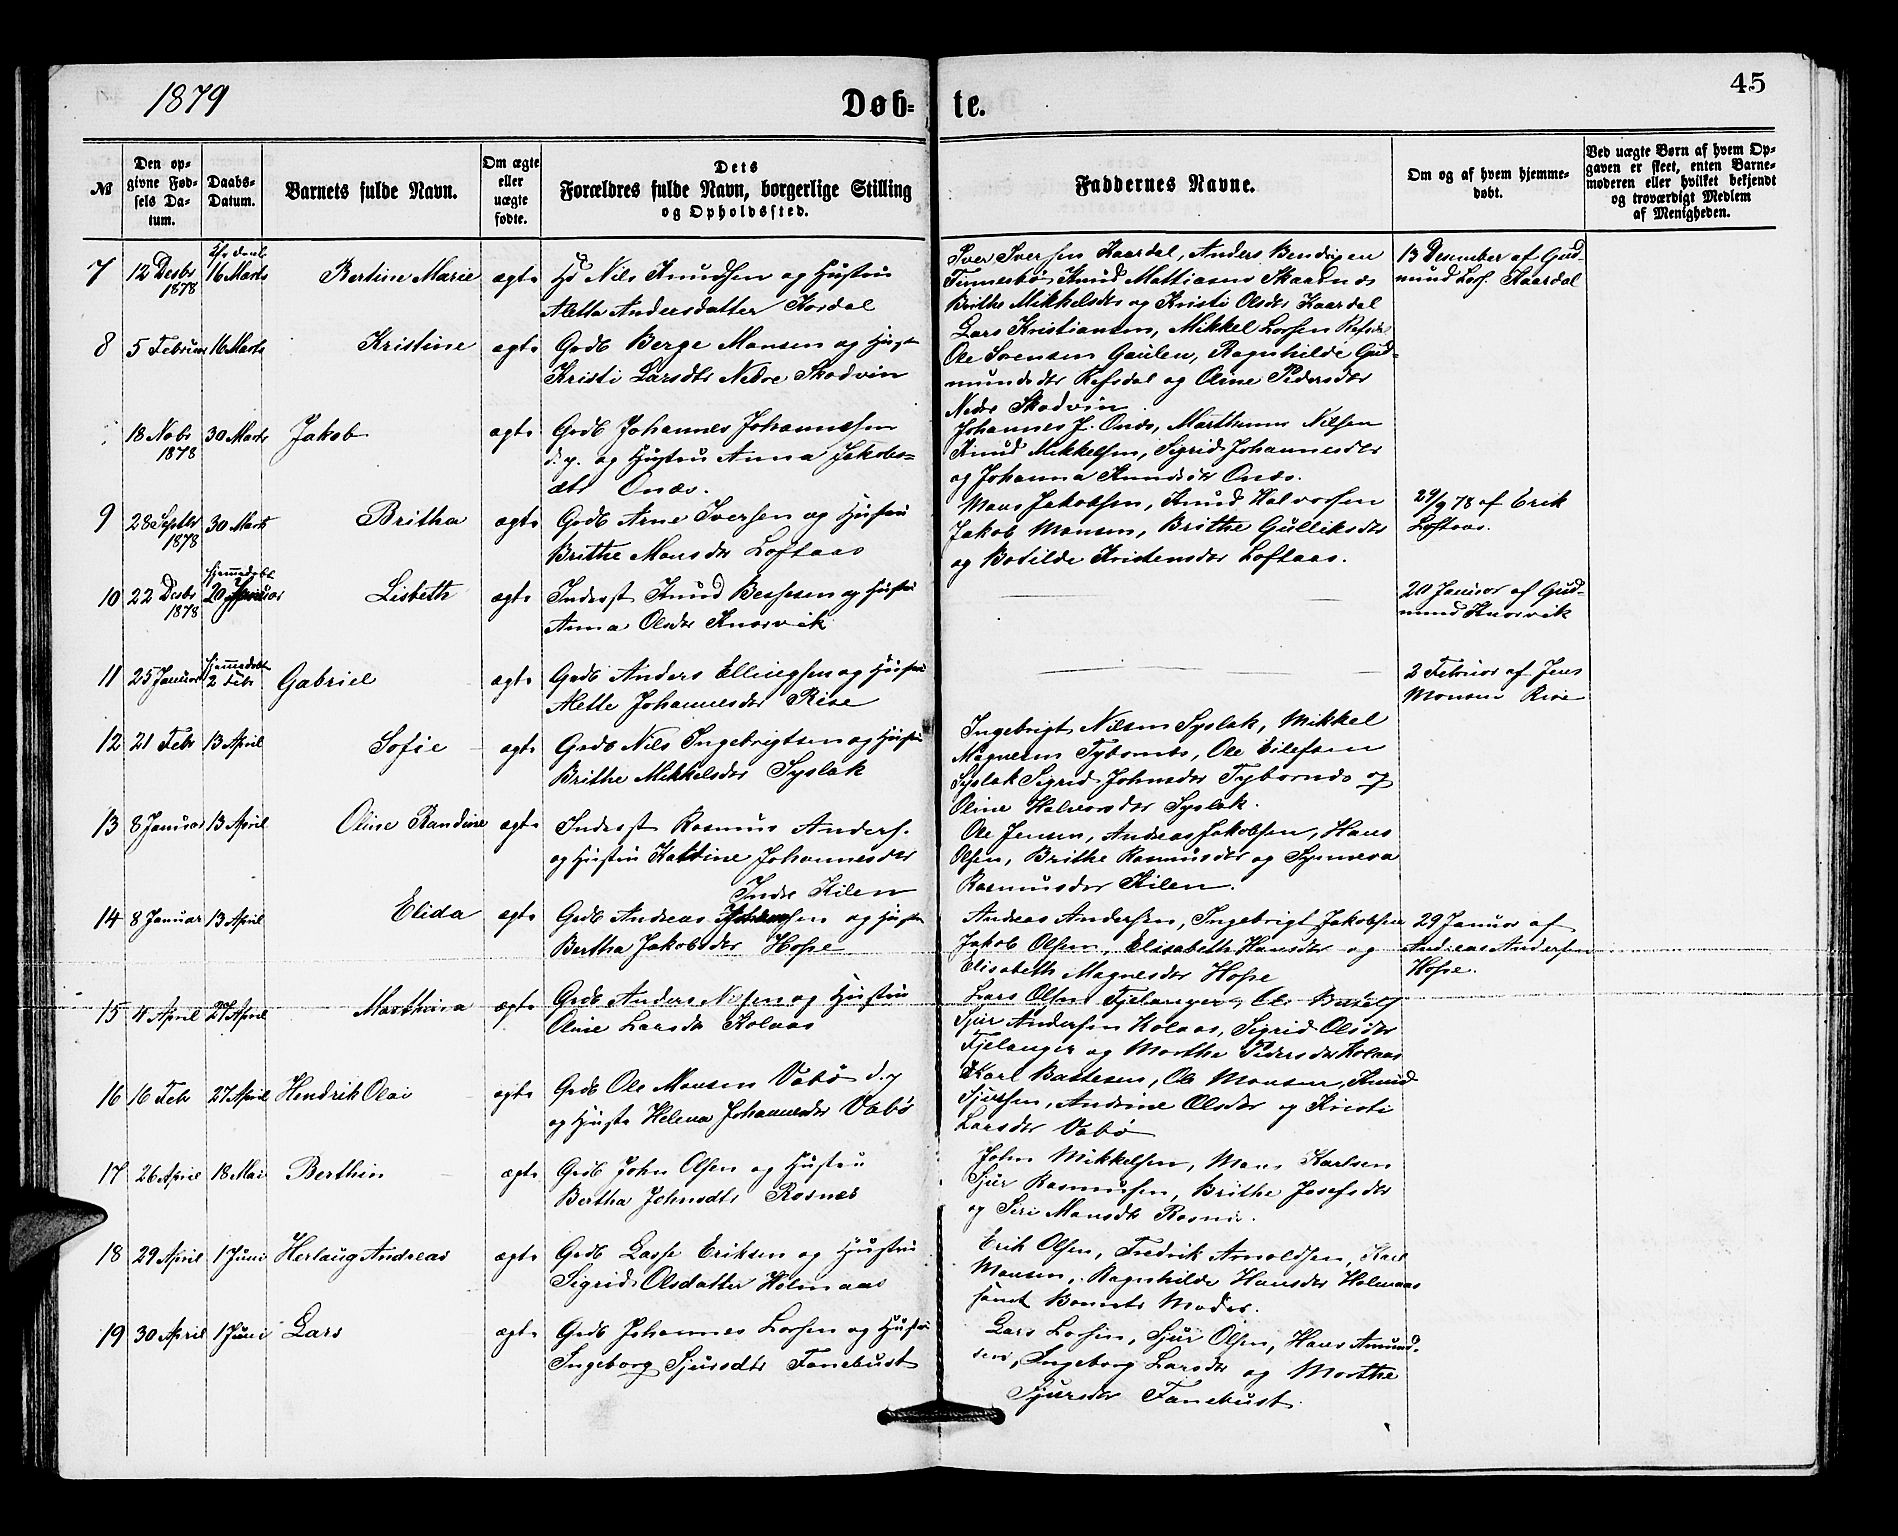 1879
Døb-
te.
45
№
Den op-
givne Fød-
sels Da-
tum.
Daabs-
Datum.
Barnets fulde Navn.
Om ægte
eller
uægte
fødte.
Dets
Forældres fulde Navn, borgerlige Stilling
og Opholdssted.
Faddernes Navne.
Om og af hvem hjemme-
døbt.
Ved uægte Børn af hvem Op-
gaven er skeet, enten Barne-
moderen eller hvilket bekjendt
og troværdigt Medlem
af Menigheden.
7 12 Desbr 16 Marts Bertine Marie ægte Nils Knudsen og Hustru
1878
Aletta Andersdatter Kordal
Iver Iversen Kaardal, Anders Bendixen
Knud Mattiasen Skaarnes
Brithe Mikkelsdr og Kristi Olsdr Kaardal
13 Desember af Gud-
mund Kaardal
8 5 Februar 16 Marts Kristine ægte Grdb Berge Monsen og Hust
Kristi Larsdtr Nedre Skodvin
Lars Kristiansen, Mikkel Larsen Refsdal
Ole Svensen Gaulen, Ragnhilde Gud-
mundsdr Refsdal og Oline Pedersdr
Nedr Skodvin
18 Nobr 30 Marts Jakob ægte Grdb Johannes Johannesen
1878
d.y. og Hustru Anna Jakobs-
dtr Onæs.
Johannes J. Onæs, Marthinus Nilsen
Knud Mikkelsen, Sigrid Johannesdr
og Johanna Knudsdtr Onæs.
9 28 Septbr 30 Marts Britha ægte Grdb Arne Iversen og Hustru
1878
Brithe Monsdr Loftaas
Mons Jakobsen, Knud Halvorsen
Jakob Monsen, Brithe Gulliksdr
og Botilde Kristensdr Loftaas.
29/9 78 af Erik
Loftaas.
10 22 Desbr hjemmedøbt 20 Januar Lisbeth ægte Inderst Knud Bessesen og Hustru
1878
Anna Olsdr Knarvik
20 Januar af Gud-
mund Knarvik
11 25 Januar hjemmedøbt 2 Febr Gabriel ægte Grdb Anders Ellingsen og Hustru
Alette Johannesdr Rise
2 Februar af Jens
Monsen Rise
12 21 Febr 13 April Sofie ægte Grdb Nils Ingebrigtsen og Hustru
Brithe Mikkelsdr Syslak
Ingebrigt Nilsen Syslak, Mikkel
Magnesen Tybornes, Ole Eilefsen
Syslak Sigrid Johnsdr Tybornes og
Oline Halvorsdr Syslak.
13 8 Januar 13 April Oline Randine ægte Inderst Rasmus Anders.
og Hustru Katrine Johannesdr
Indr Kilen
Ole Jensen, Andreas Jakobsen, Hans
Olsen, Brithe Rasmusdr og Synneva
Rasmusdr Kilen.
14 8 Januar 13 April Elida ægte Grdb Andreas og Hustru
Bertha Jakobsdr Hopse
Andreas Andersen, Ingebrigt Jakobsen
Jakob Olsen, Elisabeth Hansdr og
Elisabeth Magnesdr Hopse
29 Januar af
Andreas Andersen
Hopse.
15 4 April 27 April Marthina ægte Grdb Anders Nilsen og Hustru
Oline Larsdr Kolaas
Lars Olsen Fjelanger, Ole
Sjur Andersen Kolaas, Sigrid Olsdr
Fjelanger og Marthe Pedersdr Kolaas
16 16 Febr 27 April Hendrik Olai ægte Grdb Ole Monsen Vabø d.y
og Hustr Helena Johannesdr Vabø
Karl Bastesen, Ole Monsen, Knud
Sjursen, Andrine Olsdr og Kristi
Larsdr Vabø
17 26 April 18 Mai Berthin ægte Grdb John Olsen og Hustru
Bertha Johnsdtr Rosnes
John Mikkelsen, Mons Karlsen
Sjur Rasmusen, Brithe Josefsdr
og Siri Monsdtr Rosnes.
18 29 April 1 Juni Herlaug Andreas ægte Grdb Lasse Eriksen og Hustru
Sigrid Olsdatter Holmaas
Erik Olsen, Fredrik Arnoldsen, Karl
Monsen, Ragnhilde Hansdr Holmaas
samt Barnets Moder.
19 30 April 1 Juni Lars ægte Grdb Johannes Larsen og Hustru
Ingeborg Sjursdtr Fanebust
Lars Larsen, Sjur Olsen, Hans Amund-
sen, Ingeborg Larsdr og Marthe
Sjursdr Fanebust